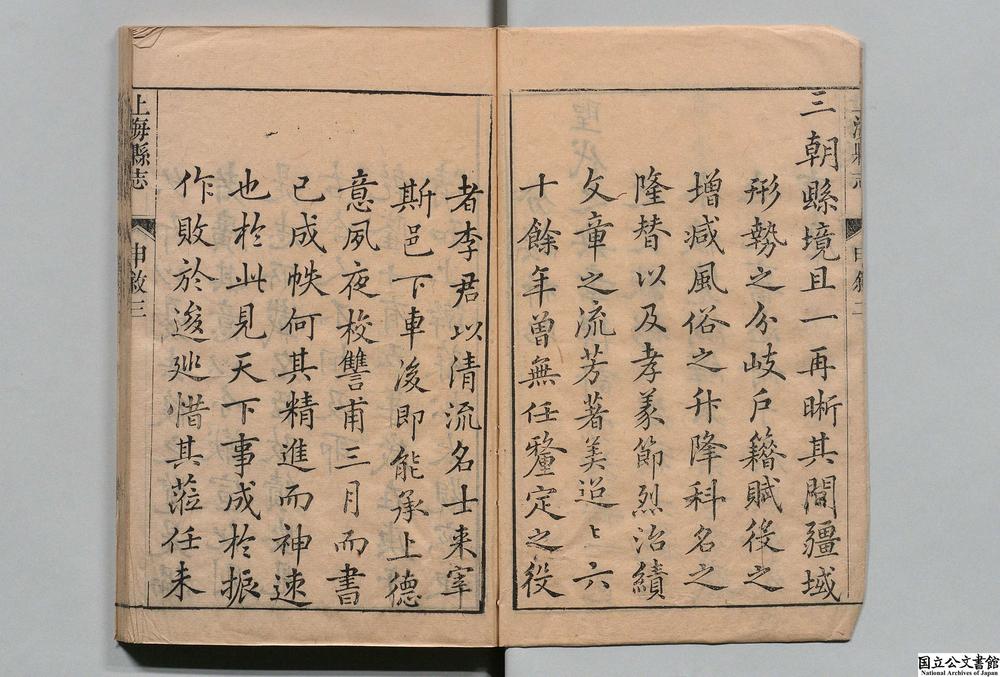 三朝縣境且一再晣其閒疆域
形勢之分岐戶籍賦役之
增減風俗之升降科名之
隆替以及孝義節烈治績
文章之流芳著美迢〻六
十餘年曾無任釐定之役
者李君以清流名士来宰
斯邑下車後即能承上德
意夙夜校讐甫三月而書
已成帙何其精進而神速
也於此見天下事成於振
作敗於逡廵惜其蒞任未
上海縣志
申敘三
国立公文書館
National Archives of Japan